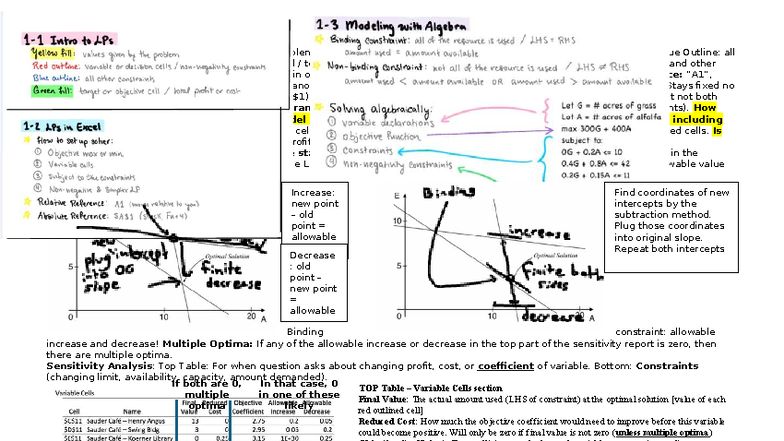 1-1 Intro to LPs
Yellow fill: values given by the problem
Red outline: variable or decision cells / non-negativity constraints
Blue outline: all other constraints
Green fill: target or objective cell / total profit or cost
1-2 LPs in Excel
How to set up solver:
① Objective max or min
② Variable cells
③ Subject to the constraints
④ Non-negative & Simplex LP
Relative Reference: A1
Absolute Reference: $A$1
1-3 Modeling with Algebra
Binding constraint: all of the resource is used / LHS = RHS
amount used = amount available
Non-binding constraint: not all of the resource is used / LHS ≠ RHS
amount used < amount available OR amount used > amount available
Solving algebraically:
① variable declarations
② objective function
③ constraints
④ non-negativity constraints
Let G = # acres of grass
Lot A = # acres of alfalfa
max 300G + 400A
subject to:
0G + 0.2A <= 10
0.4G + 0.8A <= 42
0.2G + 0.15A <= 11
ue Outline: all
and other
"A1",
Stays fixed no
t not both
nts). How
including
ed cells. Is
in the
wable value
Increase:
new point
– old
point =
allowable
Decrease
: old
point –
new point
=
allowable
new
plug intercept
into OG
slope
Optimal Solution
finite
decrease
5
0
10
20
A
E
Binding
10
increase
Optimal Solution
finite both
sides
5
0
10
20
A
decrease
Find coordinates of new
intercepts by the
subtraction method.
Plug those coordinates
into original slope.
Repeat both intercepts
Binding constraint: allowable
increase and decrease! Multiple Optima: If any of the allowable increase or decrease in the top part of the sensitivity report is zero, then
there are multiple optima.
Sensitivity Analysis: Top Table: For when question asks about changing profit, cost, or coefficient of variable. Bottom: Constraints
(changing limit, availability, capacity, amount demanded).
If both are 0,
multiple
optimal
In that case, 0
in one of these
likely
Variable Cells
Final Reduced Objective Allowable Allowable
Cell Name Value Cost Coefficient Increase Decrease
$C$11 Sauder Café – Henry Angus 13 0 2.75 0.2 0.05
$D$11 Sauder Café – Swing Bldg 3 0 2.95 0.05 0.2
$E$11 Sauder Café – Koerner Library 0 0.25 3.15 1E+30 0.25
TOP Table – Variable Cells section
Final Value: The actual amount used (LHS of constraint) at the optimal solution [value of each
red outlined cell]
Reduced Cost: How much the objective coefficient would need to improve before this variable
could become positive. Will only be zero if final value is not zero (unless multiple optima)